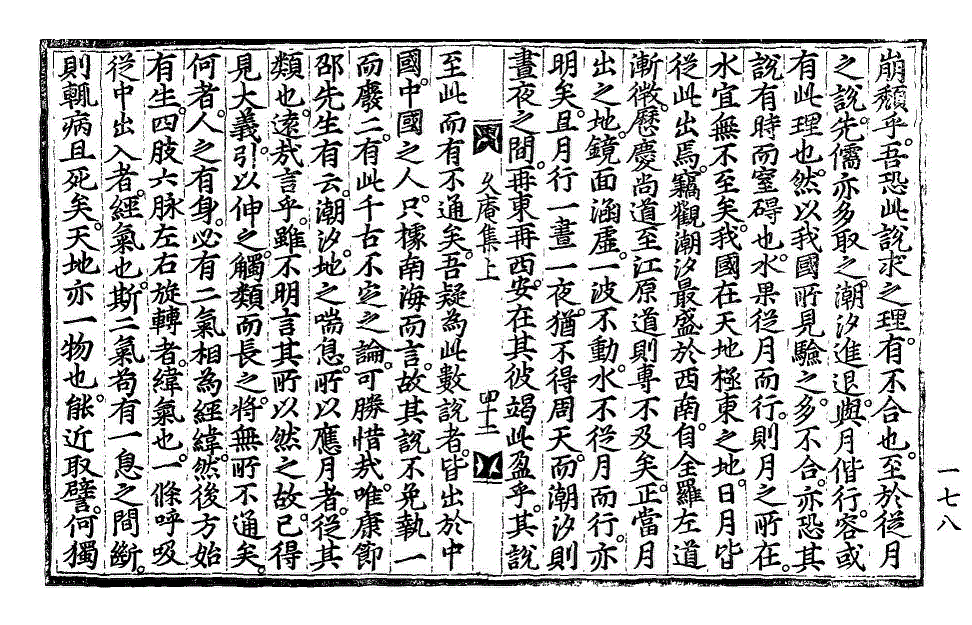 崩頹乎。吾恐此說求之理。有不合也。至於從月
之說。先儒亦多取之。潮汐進退。與月偕行。容或
有此理也。然以我國所見驗之。多不合。亦恐其
說有時而窒碍也。水果從月而行。則月之所在。
水宜無不至矣。我國在天地極東之地。日月皆
從此出焉。竊觀潮汐最盛於西南。自全羅左道
漸微。歷慶尙道至江原道則專不及矣。正當月
出之地。鏡面涵虛。一波不動。水不從月而行。亦
明矣。且月行一晝一夜。猶不得周天。而潮汐則
晝夜之間。再東再西。安在其彼竭此盈乎。其說
久庵集上 四十二
至此而有不通矣。吾疑爲此數說者。皆出於中
國。中國之人。只據南海而言。故其說不免執一
而廢二。有此千古不定之論。可勝惜哉。唯康節
邵先生有云。潮汐。地之喘息。所以應月者。從其
類也。遠哉言乎。雖不明言其所以然之故。已得
見大義。引以伸之。觸類而長之。將無所不通矣。
何者。人之有身。必有二氣相爲經緯。然後方始
有生。四肢六脉左右旋轉者。緯氣也。一條呼吸
從中出入者。經氣也。斯二氣苟有一息之間斷。
則輒病且死矣。天地亦一物也。能近取譬。何獨
一七八